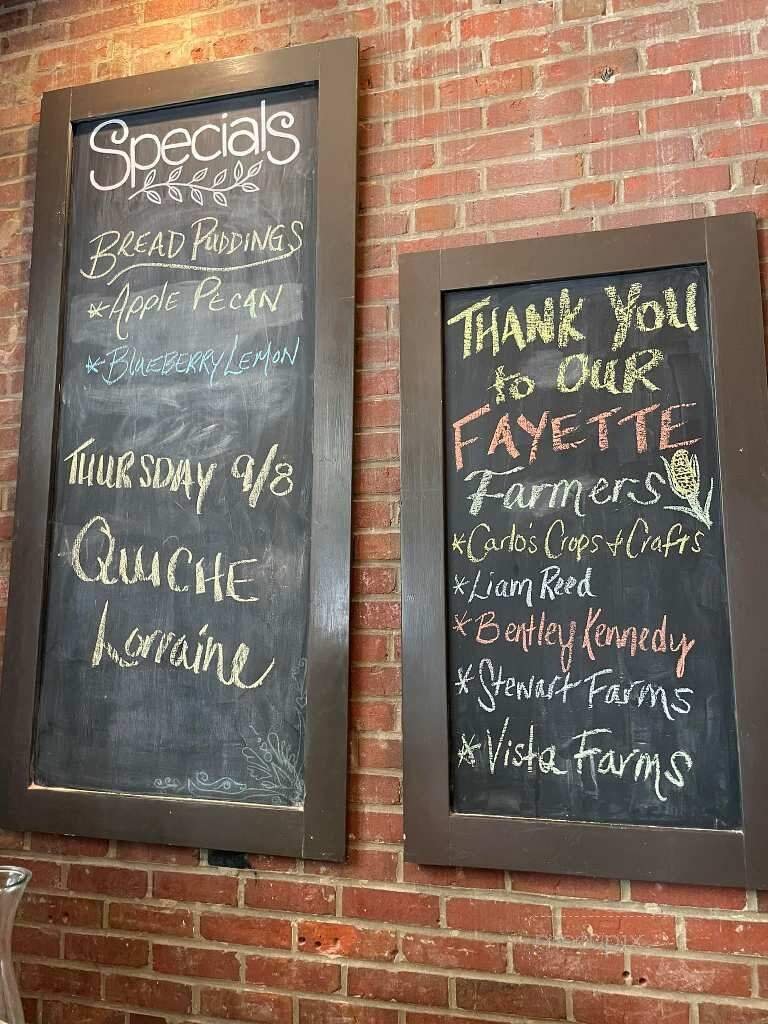 Specials
BREAD PUDDINGS
*Apple PECAN
*BLUEBERRY LEMON
THURSDAY 9/8
QUICHE
Lorraine
THANK YOU
to OUR
FAYETTE
Farmers
*Carlo's Crops + Crafts
*Liam Reed
*Bentley Kennedy
*Stewart Farms
*Vista Farms